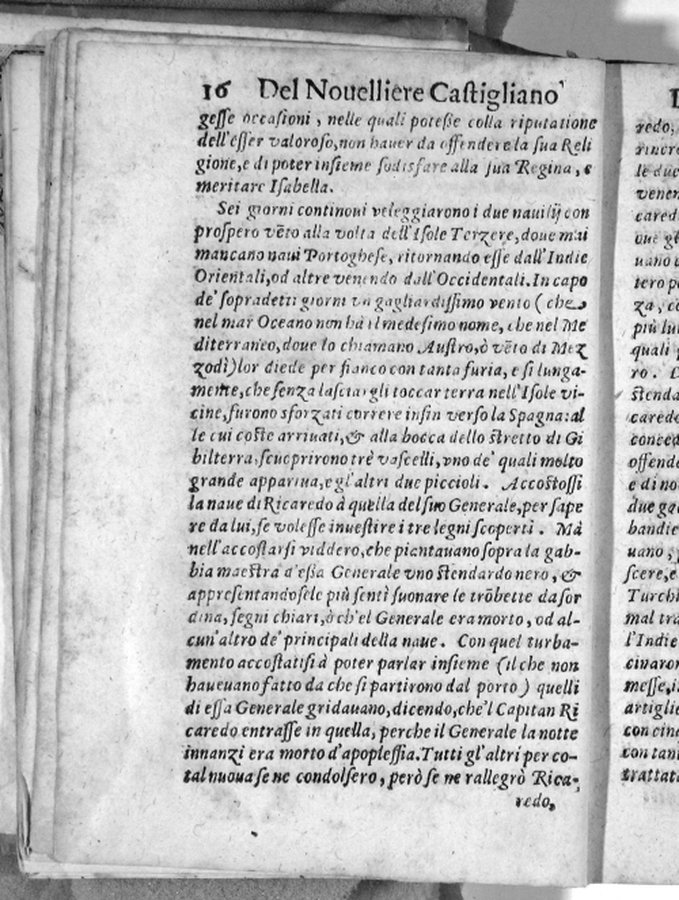 16 Del Nouelliere Castigliano
gesse occasioni, nelle quali poteße colla riputatione
dell'esser valoroso, non hauer da offendere la sua Reli
gione, e di poter insieme sodisfare alla sua Regina, e
meritare Isabella.
Sei giorni continoui veleggiarono i due nauilij con
prospero vẽto alla volta dell'Isole Terzere, doue mai
mancano naui Portoghese, ritornando esse dall'Indie
Orientali, od altre venendo dall'Occidentali. In capo
de' sopradetti giorni vn gagliardissimo vento (che
nel mar Oceano non hà il medesimo nome, che nel Me
diterraneo, doue lo chiamano Austro, ò vẽto di Mez
zodì) lor diede per fianco con tanta furia, e sì lunga-
mente, che senza lasciargli toccar terra nell'Isole vi-
cine, furono sforzati correre infin verso la Spagna: al
le cui coste arriuati, & alla bocca dello stretto di Gi
bilterra, scuoprirono trè vascelli, vno de' quali molto
grande appariua, e gl'altri due piccioli. Accostossi
la naue di Ricaredo à quella del suo Generale, per sape
re da lui, se volesse inuestire i tre legni scoperti. Mà
nell'accostarsi viddero, che piantauano sopra la gab-
bia maestra d'eßa Generale vno stendardo nero, &
appresentandosele più sentì suonare le trõbette da sor
dina, segni chiari, ò ch'el Generale era morto, od al-
cun'altro de' principali della naue. Con quel turba-
mento accostatisi à poter parlar insieme (il che non
haueuano fatto da che si partirono dal porto) quelli
di essa Generale gridauano, dicendo, che'l Capitan Ri
caredo entrasse in quella, perche il Generale la notte
innanzi era morto d'apoplessia. Tutti gl'altri per co-
tal nuoua se ne condolsero, però se ne rallegrò Rica-
redo,
redo,
le due
venen
cared
uano
tero p
za, c
più lu
quali
ro.
stenda
caredo
conced
offend
e di no
due ga
bandie
uano,
scere, e
Turch
mal tra
l'Indie
cinaron
messe, i
artiglie
con cin
con tan
trattat